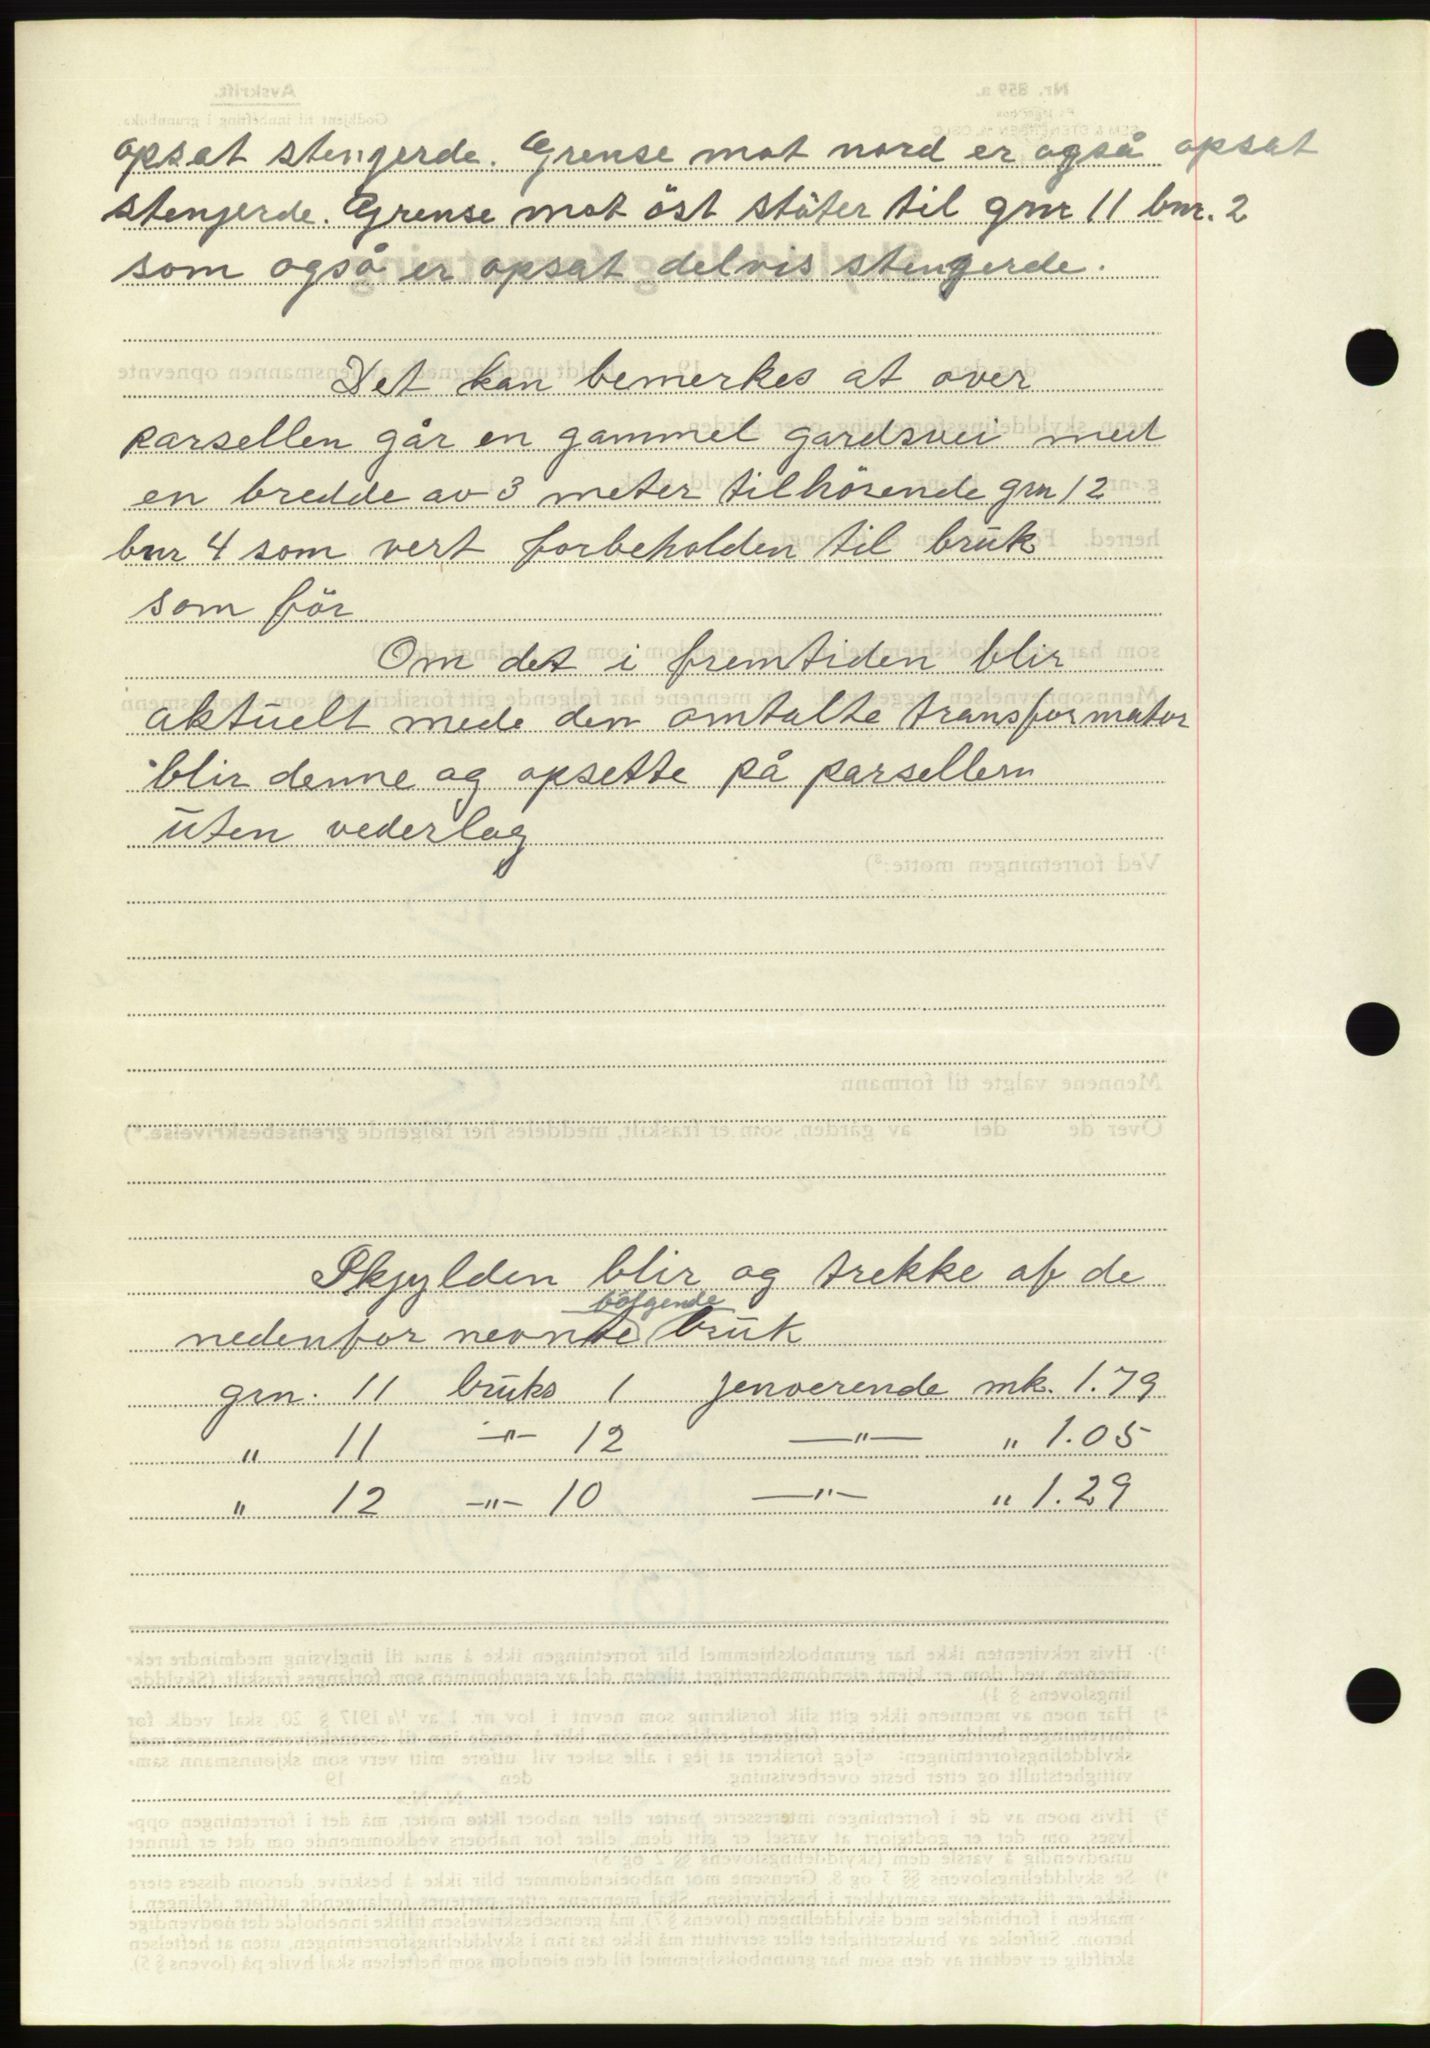 opsat stengerde. Grense mot nord er også opsat
stengerde. Grense mot öst stöter til gnr 11 bnr. 2
som også er opsat delvis stengerde.
Det kan bemerkes at over
parsellen går en gammel gardsvei med
en bredde av 3 meter tilhörende gnr 12
bnr 4 som vert forbeholden til bruk
som för
Om det i fremtiden blir
aktuelt mede den omtalte transformator
blir denne og opsette på parsellen
uten vederlag
Skjylden blir og trekke af de
fölgende
nedenfor nevnte bruk
grn. 11 bruks 1 jenverende mk. 1.79
" 11 —"— 12 —"— " 1.05
" 12 —"— 10 —"— " 1.29